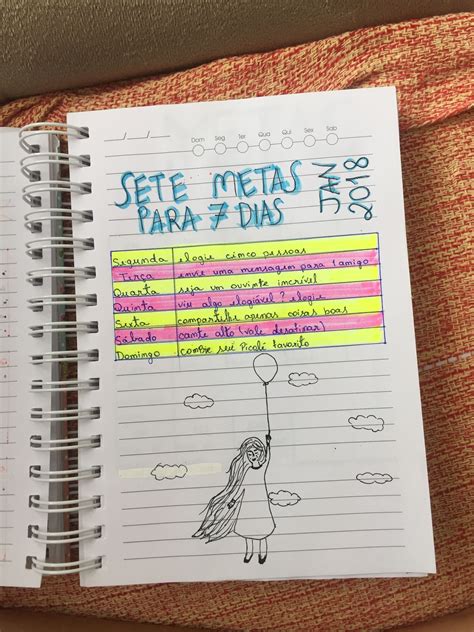 __/__/__
Dom Seg Ter Qua Qui Sex Sab
SETE METAS
PARA 7 DIAS
JAN
2018
Segunda elogie cinco pessoas
Terça envie uma mensagem para 1 amigo
Quarta seja um ouvinte incrível
Quinta viu algo elogiável? elogie
Sexta compartilhe apenas coisas boas
Sábado cante alto (vale desafinar)
Domingo compre seu Picolé favorito